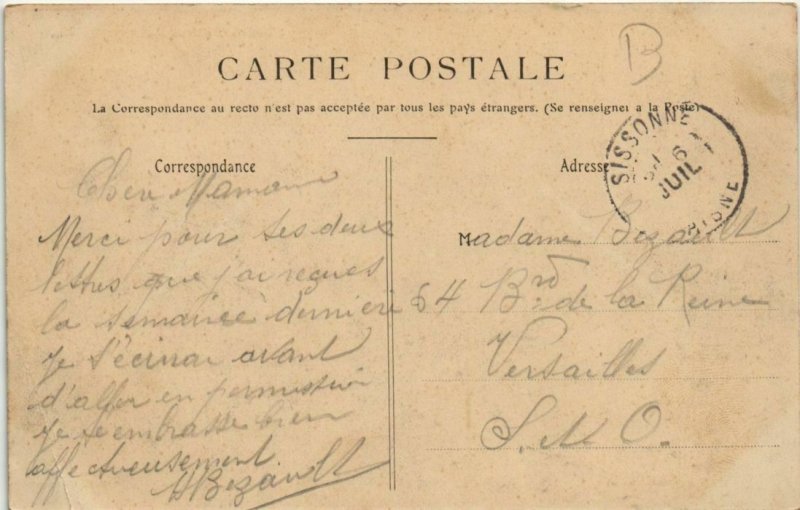 B
CARTE POSTALE
La Correspondance au recto n'est pas acceptée par tous les pays étrangers. (Se renseigner a la Poste)
Correspondance
Maman
Merci pour tes deux
lettres que j'ai reçues
la semaine dernière
je t'écirai avant
d'aller en permission
Je t'embrasse bien
affectueusement
Bezault
Adresse
SISSONNE
6
JUIL
AISNE
Madame Bezault
64 Brd de la Reine
Versailles
S. et O.